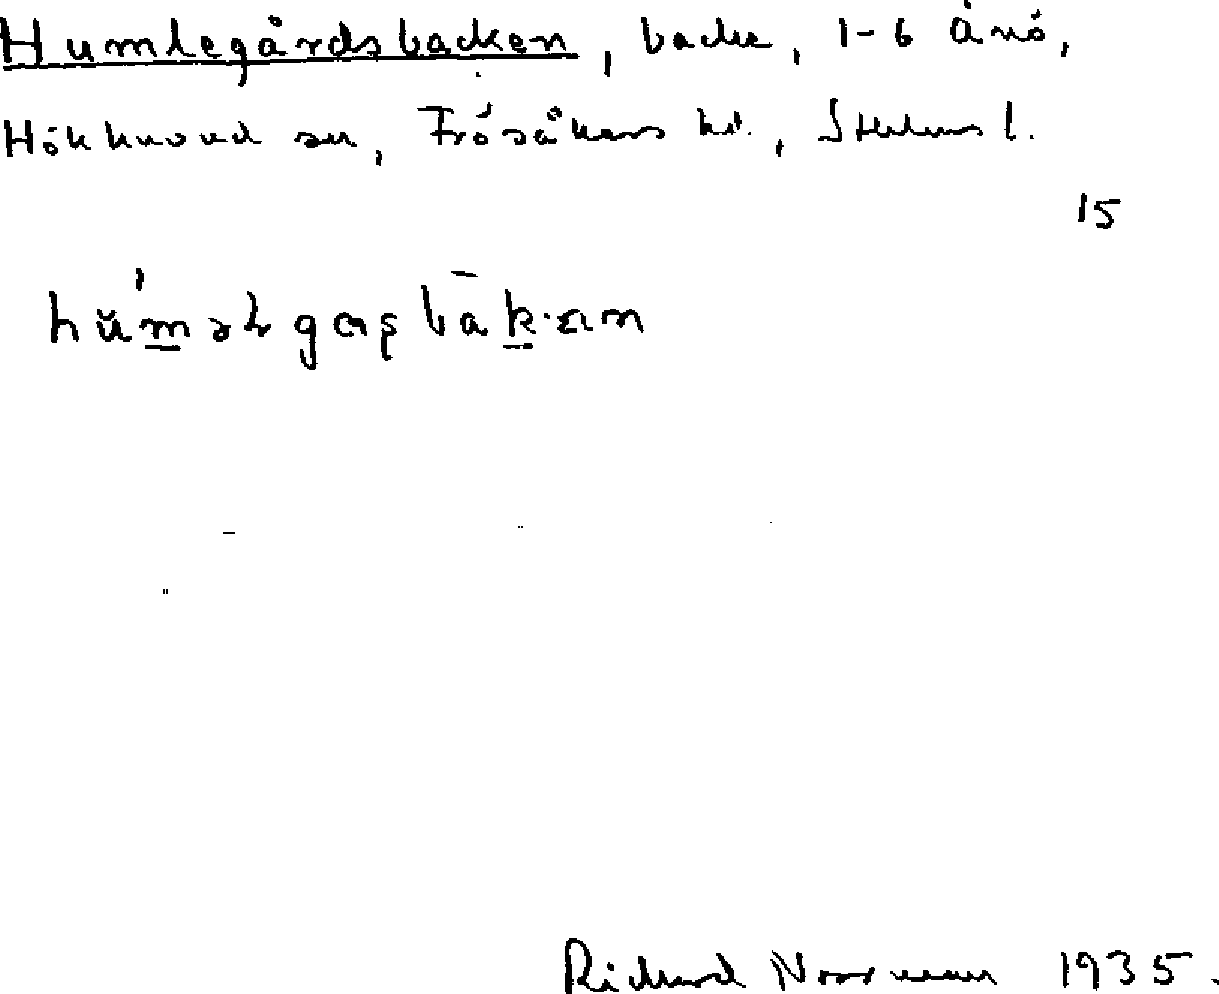 Humlegårdsbacken, backe, 1-6 Ånö,
Hökhuvud sn, Frösåkers hd., Sthlms l.
15
Richard Norrman 1935.